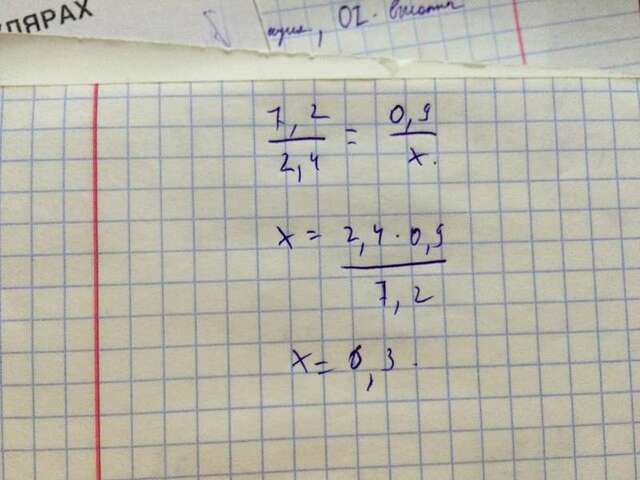 ЛЯРАХ
7,2/2,4 = 0,9/x.
x = 2,4 · 0,9/7,2
x = 0,3.